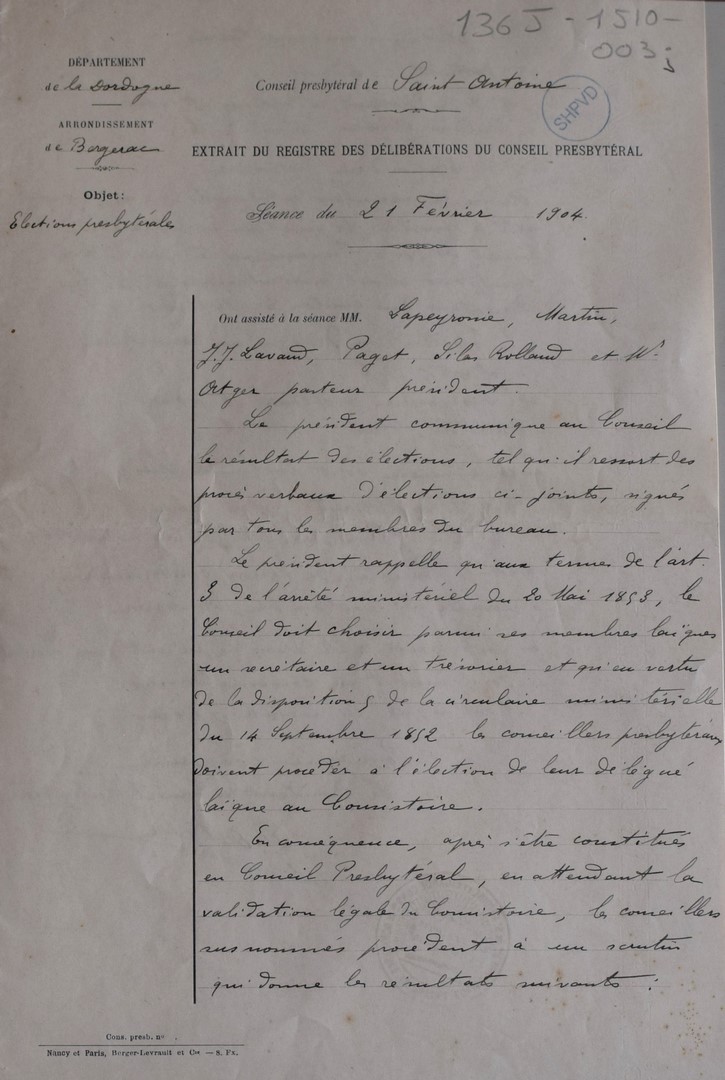 136 J - 1510 -
003 j
DÉPARTEMENT
de la Dordogne
ARRONDISSEMENT
de Bergerac
Objet :
Elections presbytérales
Conseil presbytéral de Saint Antoine
SHPVD
EXTRAIT DU REGISTRE DES DÉLIBÉRATIONS DU CONSEIL PRESBYTÉRAL
Séance du 21 Février 1904.
Ont assisté à la séance MM. Lapeyronie, Martin,
J. J. Lavaud, Paget, Silas Rolland et Mr
Atger pasteur président.
Le président communique au Conseil
le résultat des élections, tel qu'il ressort des
procès verbaux d'élections ci-joints, signés
par tous les membres du bureau.
Le président rappelle qu'aux termes de l'art.
3 de l'arrêté ministériel du 20 Mai 1853, le
Conseil doit choisir parmi ses membres laïques
un secrétaire et un trésorier et qu'en vertu
de la disposition 5 de la circulaire ministérielle
du 14 Septembre 1852 les conseillers presbytéraux
doivent procéder à l'élection de leur délégué
laïque au Consistoire.
En conséquence, après s'être constitués
en Conseil Presbytéral, en attendant la
validation légale du Consistoire, les conseillers
sus nommés procèdent à un scrutin
qui donne les résultats suivants :
Cons. presb. no
Nancy et Paris, Berger-Levrault et Cie — S. Px.